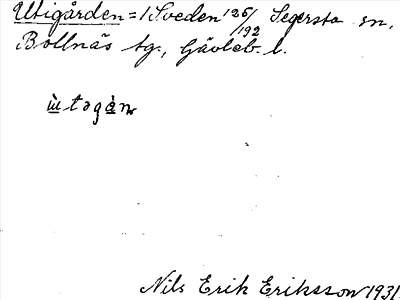 Utigården = 1 Sveden 1 26/192 Segersta sn,
Bollnäs tg., Gävleb. l.
ùtogàn
Nils Erik Eriksson 1931